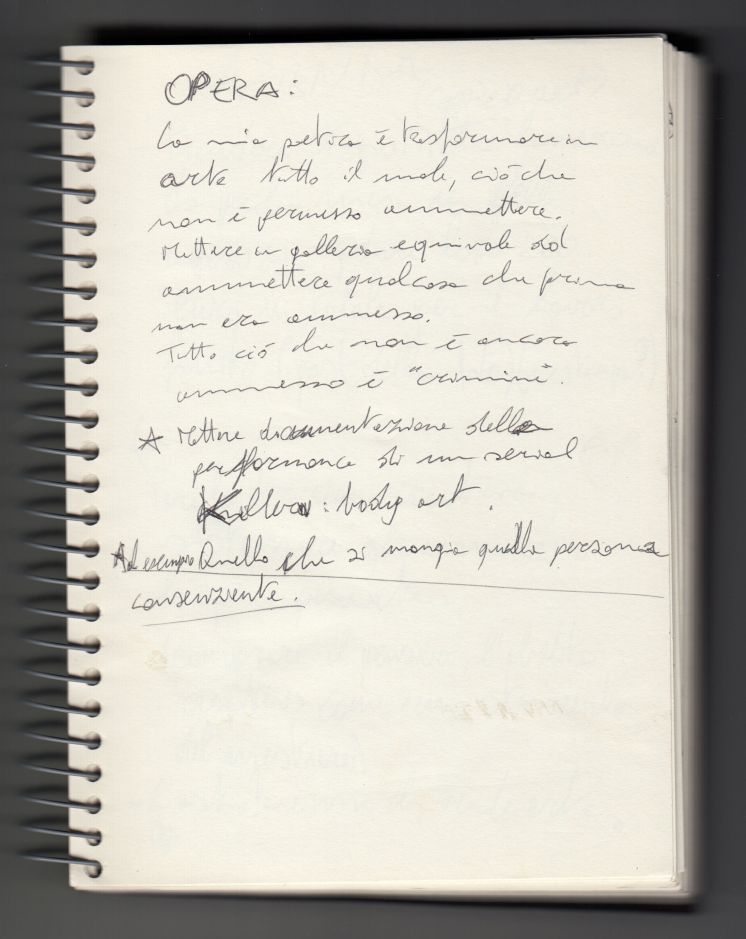 OPERA:
La mia poetica è trasformare in
arte tutto il male, ciò che
non è permesso ammettere.
Mettere in galleria equivale ad
ammettere qualcosa che prima
non era ammesso.
Tutto ciò che non è ancora
ammesso è "crimine".
☆ Mettere documentazione della
performance di un serial
Killer: body art.
Ad esempio Quello che si mangia quella persona
consenziente.